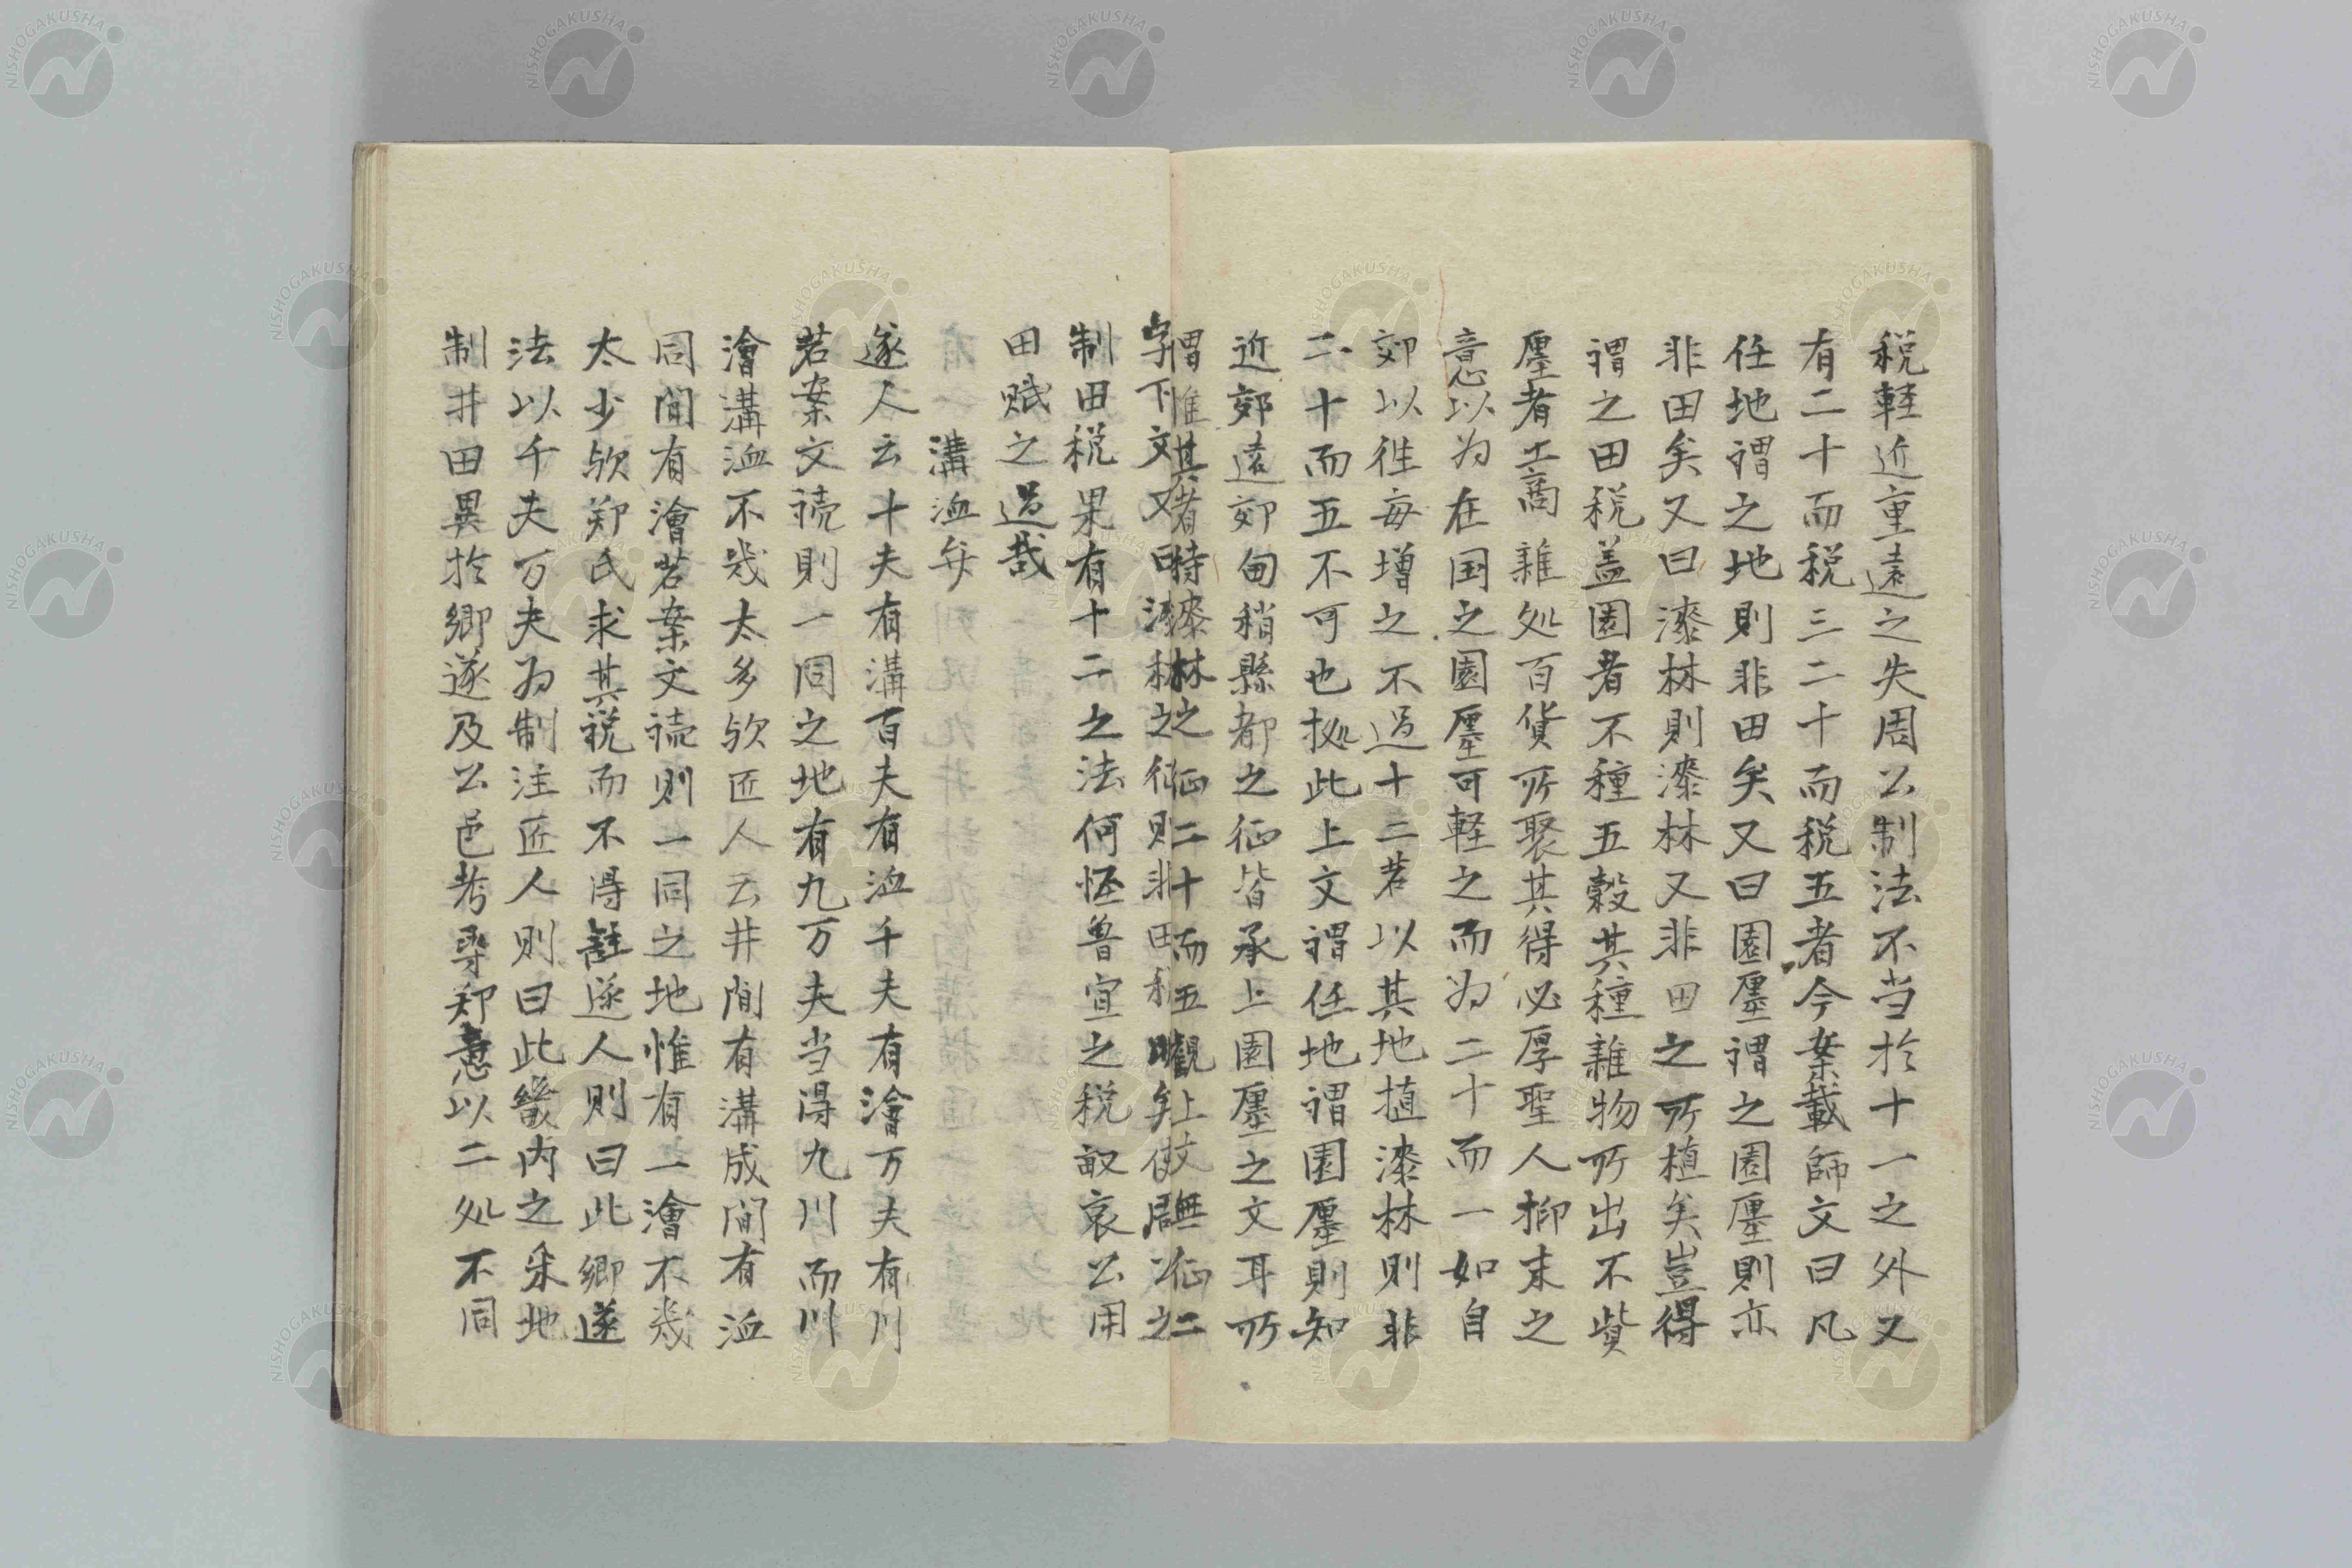 税軽近重遠之失周公制法不当於十一之外又
有二十而税三二十而税五者今案載師文曰凡
任地謂之地則非田矣又曰園廛謂之園廛則亦
非田矣又曰漆林則漆林又非田之所植矣豈得
謂之田税盖園者不種五穀其種雜物所出不貲
廛者工商雜処百貨所聚其得必厚聖人抑末之
意以为在国之園廛可軽之而为二十而一如自
郊以徃每増之不過十二若以其地植漆林則非
二十而五不可也拠此上文謂任地謂園廛則知
近郊遠郊甸稍縣都之征皆承上園廛之文耳所
謂惟其漆林之征二十而五觀上文無征二
字下文又曰漆林之征則非田税明矣使周公之
制田税果有十二之法何怪魯宣之税畝哀公用
田賦之過哉
溝洫弁
遂人云十夫有溝百夫有洫千夫有澮万夫有川
若案文読則一同之地有九万夫当得九川而川
澮溝洫不幾太多欤匠人云井間有溝成間有洫
同間有澮若案文読則一同之地惟有一澮不幾
太少欤郑氏求其税而不得註遂人則曰此鄉遂
法以千夫万夫为制注匠人則曰此畿内之采地
制井田異於鄉遂及公邑考尋郑意以二処不同
NISHOGAKUSHA